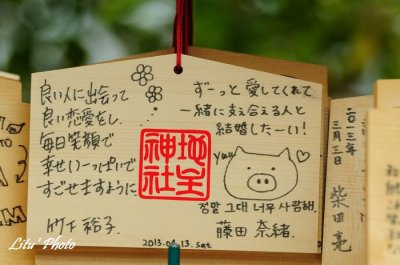 良い人に出会って
良い恋愛をし、
毎日笑顔で
幸せいーっぱいで
すごせますように
竹下 裕子
ずーっと愛してくれて
一緒に支え合える人と
結婚したーい！
地主
神社
정말 그대 너무 사랑해.
藤田 奈緒
2013.04.13.sat
二〇一三年
三月三日
柴田 亮
Litu' Photo